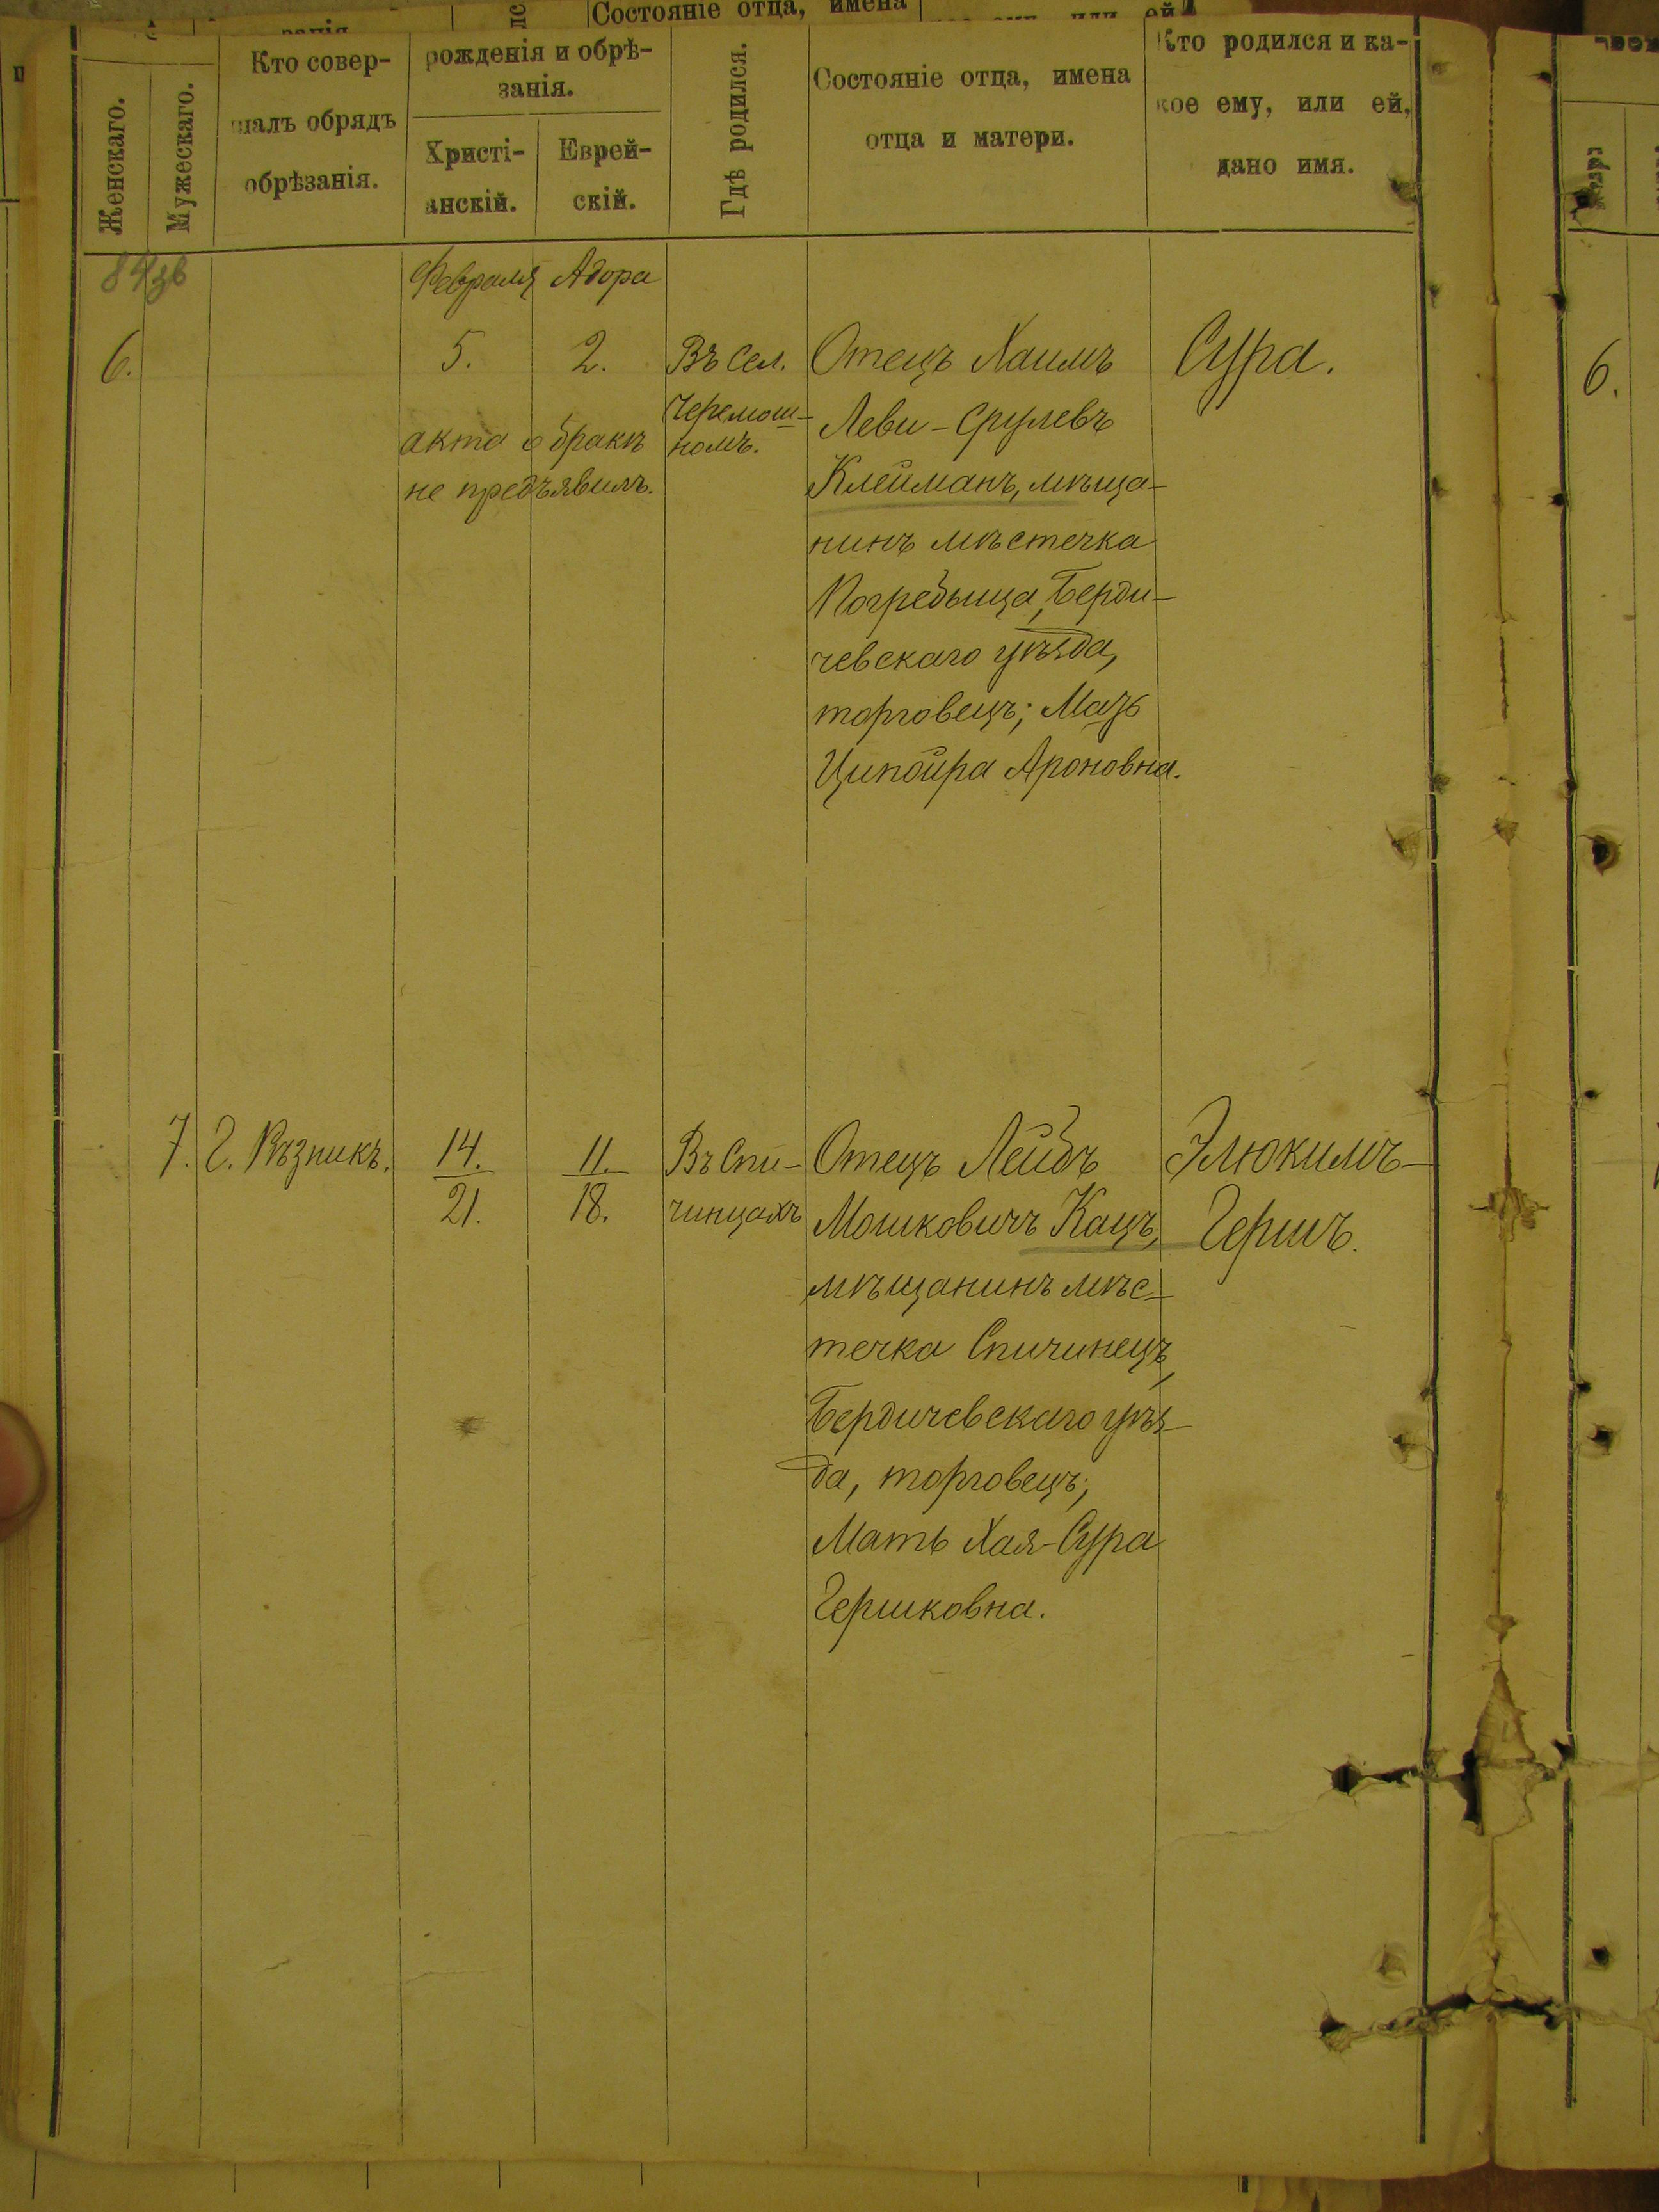 Состояніе отца, имена
Женскаго.
Мужескаго.
Кто совер-
шалъ обрядъ
обрѣзанія.
рожденія и обрѣ-
занія.
Христі-
анскій.
Еврей-
скій.
Гдѣ родился.
Состояніе отца, имена
отца и матери.
Кто родился и ка-
кое ему, или ей,
дано имя.
Февраля Адора
6.
5.
2.
Въ Сел.
Черемош-
номъ.
акта о бракѣ
не предъявилъ.
Отецъ Хаимъ
Леви-Срулевъ
Клейманъ, мѣща-
нинъ мѣстечка
Погребыща, Берди-
чевскаго уѣзда,
торговецъ; Мать
Ципойра Ароновна.
Сура.
6.
7.
Г. Рѣзникъ.
14.
21.
11.
18.
Въ Спи-
чинцахъ
Отецъ Лейбъ
Мошковичъ Кацъ,
мѣщанинъ мѣс-
течка Спичинецъ,
Бердичевскаго уѣз-
да, торговецъ;
Мать Хая-Сура
Гершковна.
Элюкимъ-
Гершъ.